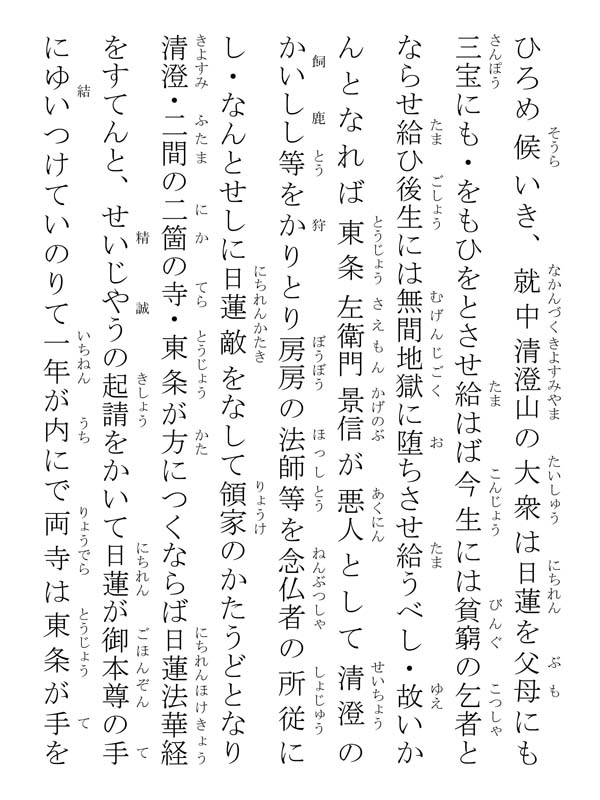 ひろめ候いき、就中清澄山の大衆は日蓮を父母にも
三宝にも・をもひをとさせ給はば今生には貧窮の乞者と
ならせ給ひ後生には無間地獄に堕ちさせ給うべし・故いか
んとなれば東条左衛門景信が悪人として清澄の
かいしし等をかりとり房房の法師等を念仏者の所従に
し・なんとせしに日蓮敵をなして領家のかたうどとなり
清澄・二間の二箇の寺・東条が方につくならば日蓮法華経
をすてんと、せいじやうの起請をかいて日蓮が御本尊の手
にゆいつけていのりて一年が内にで両寺は東条が手を